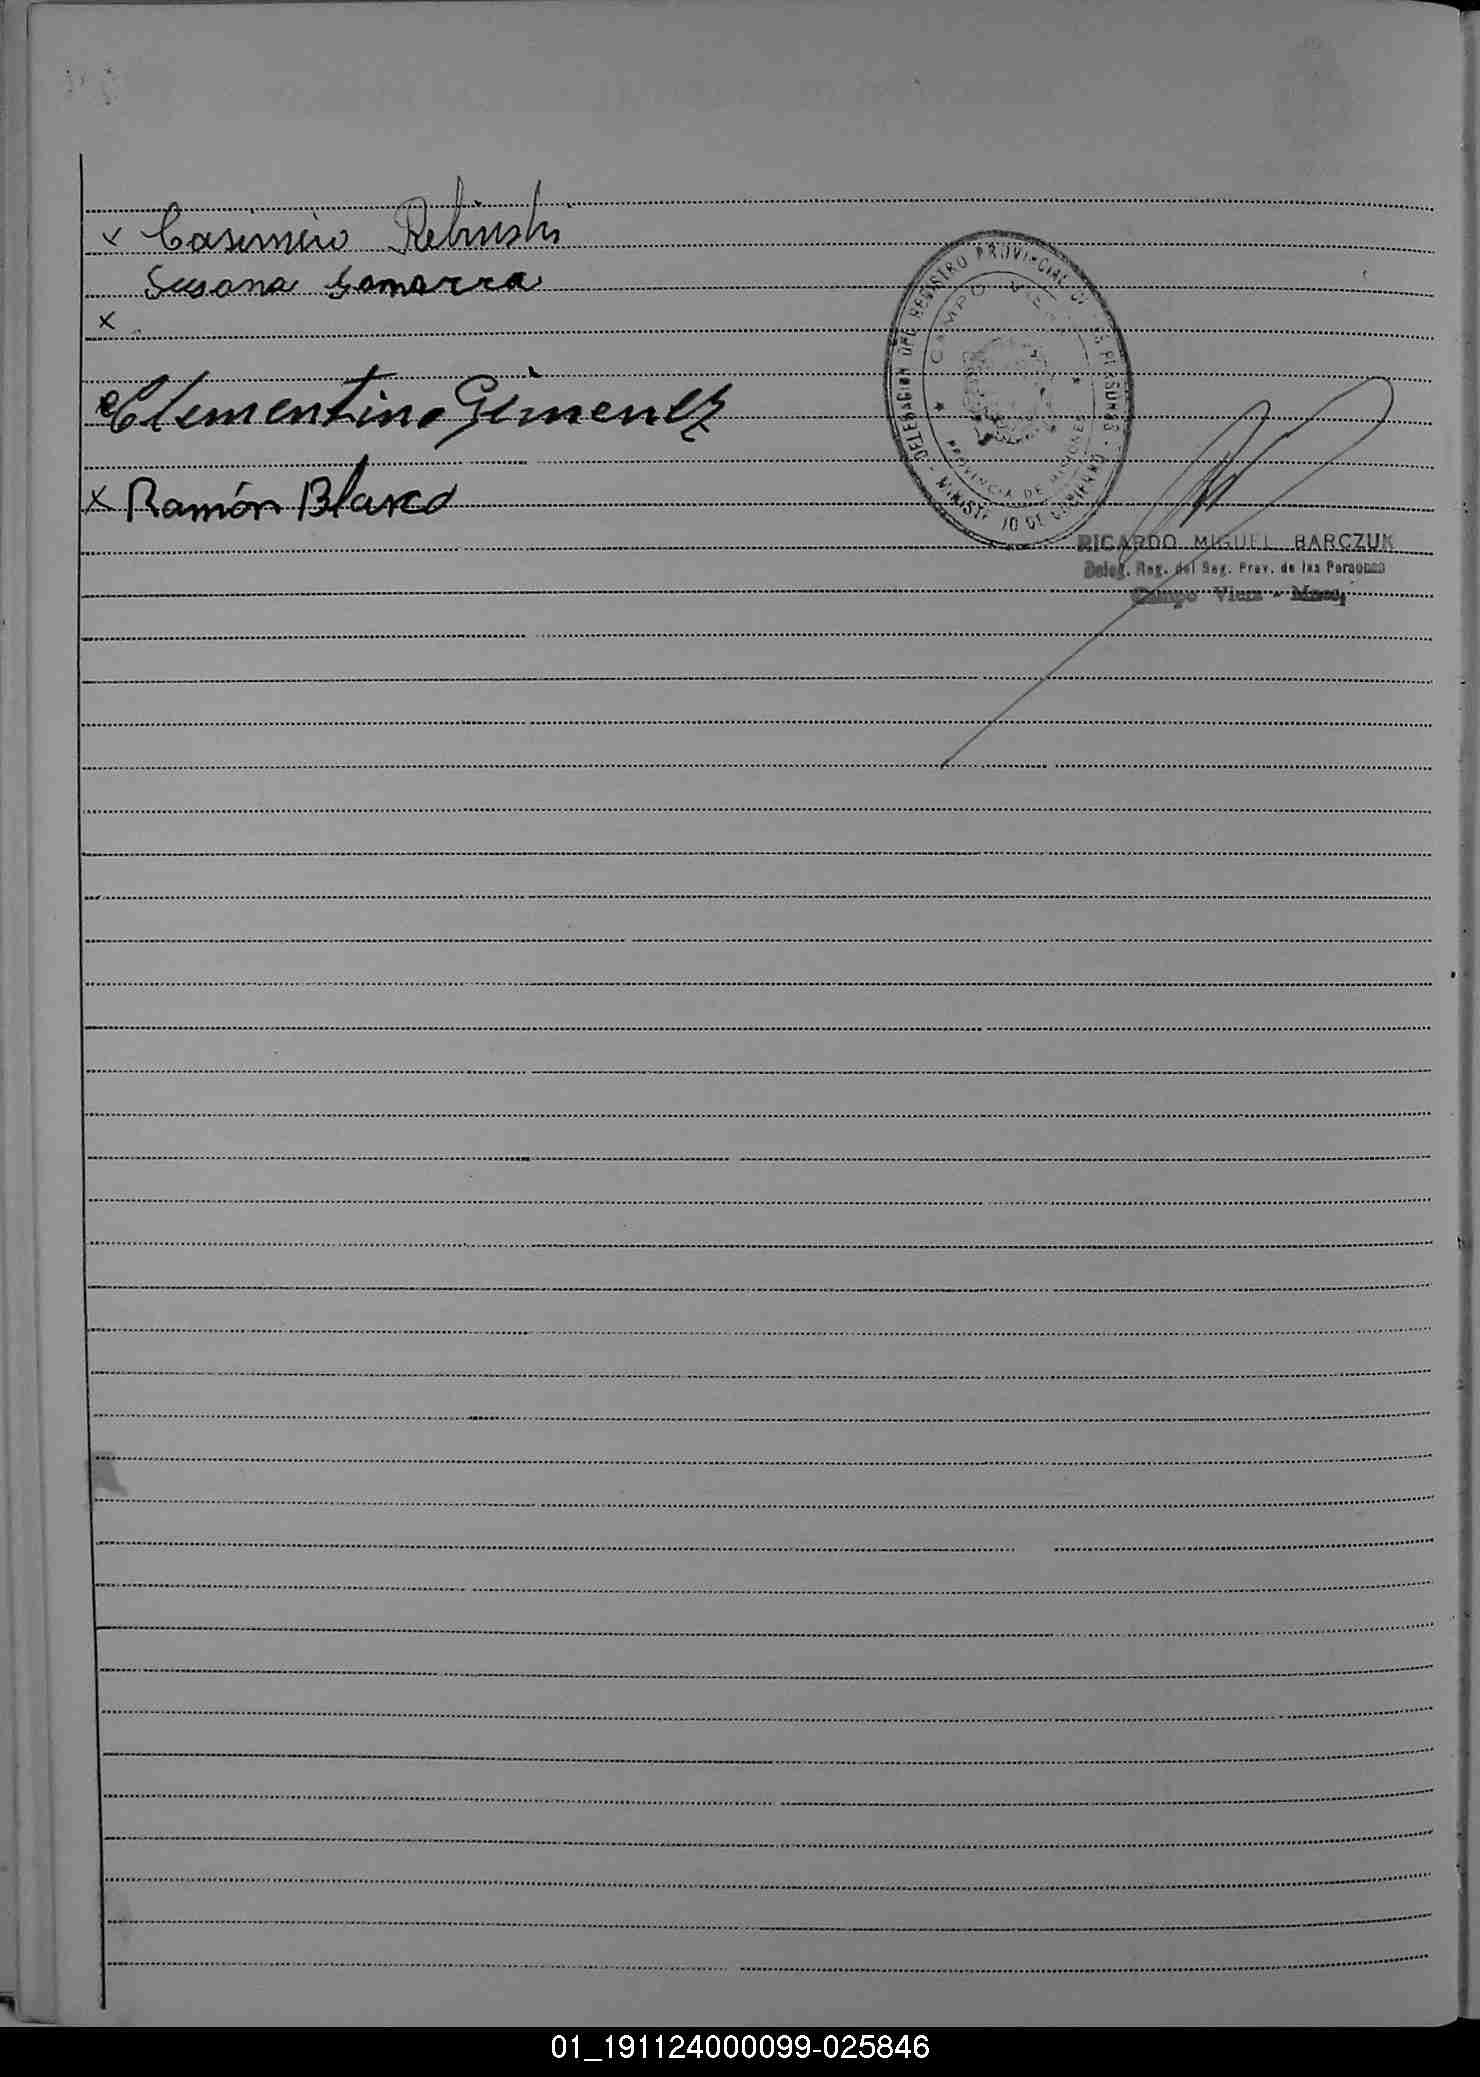 x Casimiro Rebinski
Susana Gamarra
x
Clementino Gimenez
x Ramón Blasco
DELEGACION DEL REGISTRO PROVINCIAL DE LAS PERSONAS - MINISTERIO DE GOBIERNO -
CAMPO VIERA
PROVINCIA DE MISIONES
RICARDO MIGUEL BARCZUK
Deleg. Reg. del Reg. Prov. de las Personas
Campo Viera - Mnes.
01_191124000099-025846